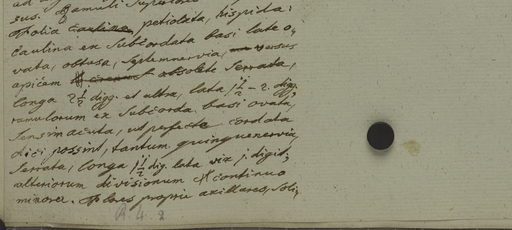 sus. Ramuli superiores
Folia petiolata, hispida:
caulina ex subcordata basi late o,
vata, obtusa, septemnervia, versus
apicem obsolete serrata,
longa 2½ digg. et ultra, lata 1½ – 2. digg.
ramulorum ex subcorda basi ovata,
sensim acuta, ut perfecte cordata
dici possint, tantum quinquenervia,
serrata, longa 1½ dig. lata vix 1. digit;
altiorum divisionum continuo
minora. Flores proprii axillares, soli,
R. 4. 2